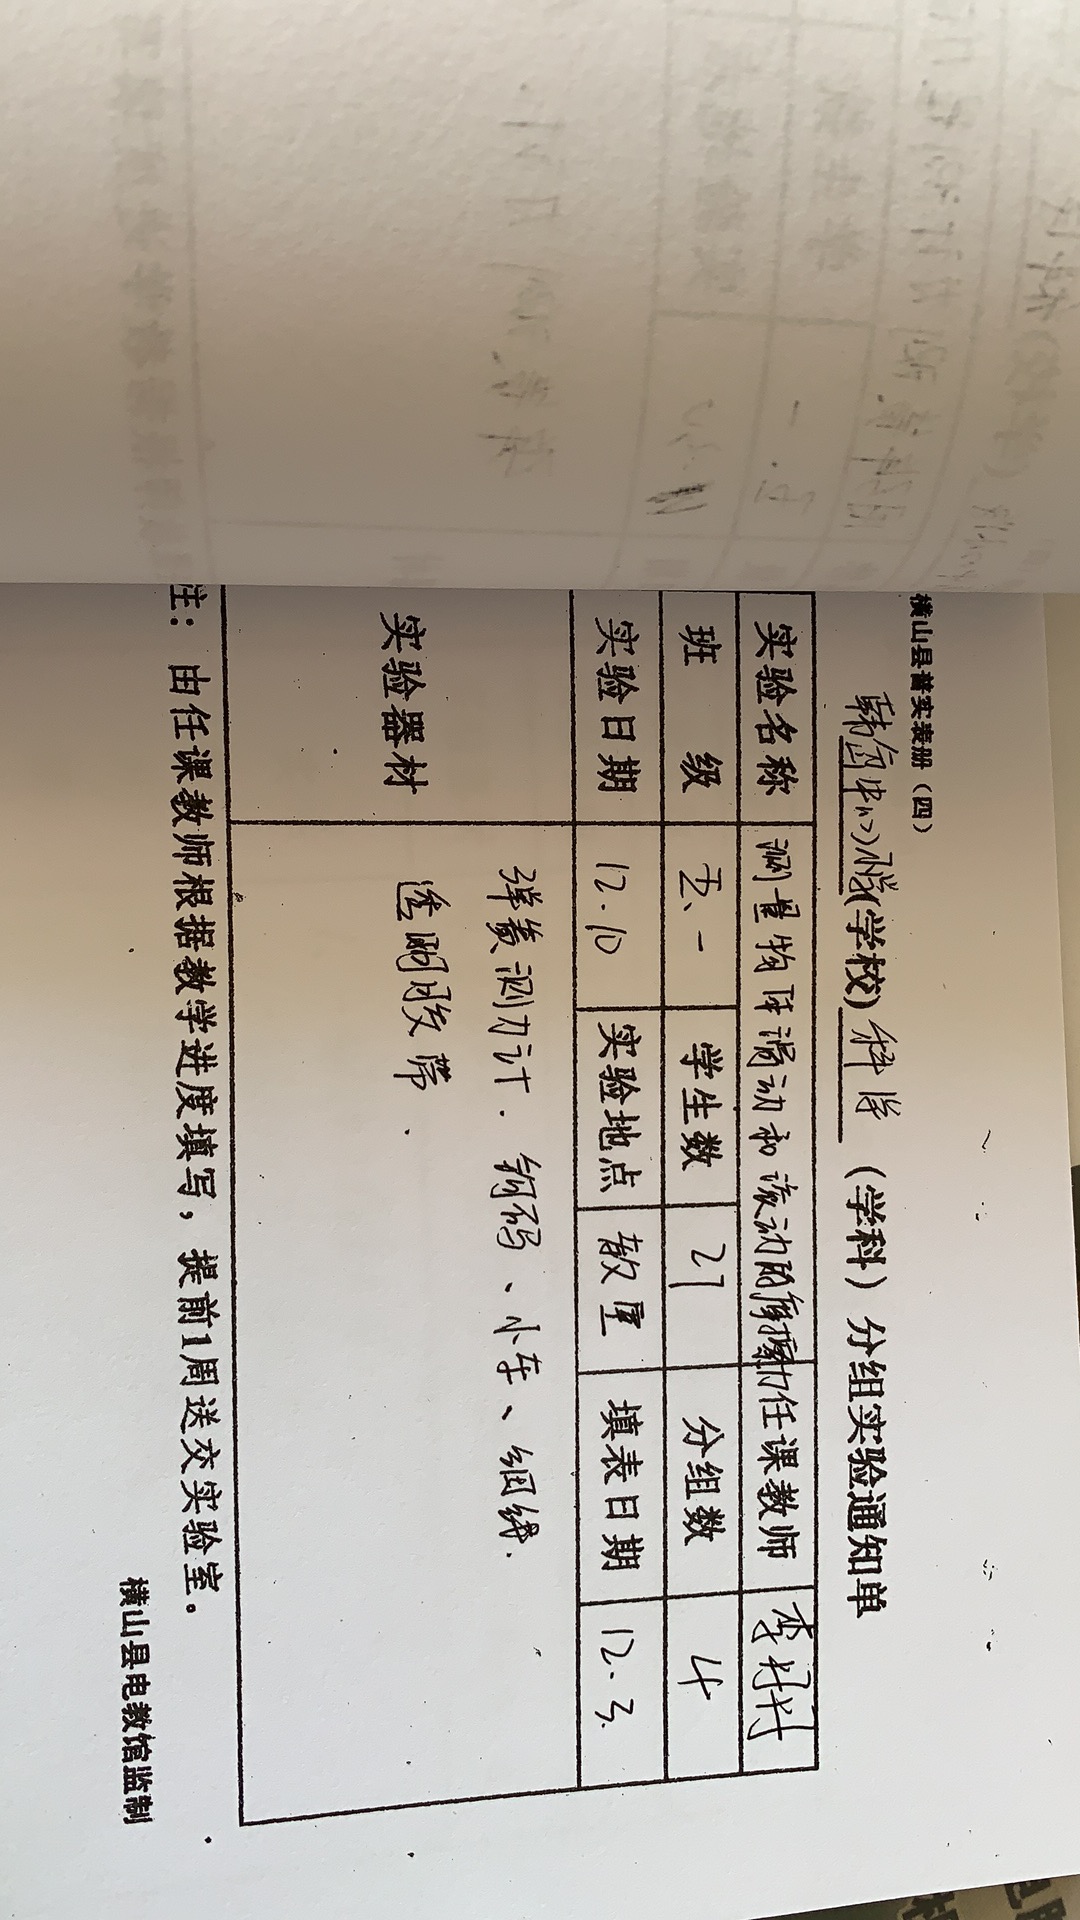 横山县普实表册（四）
中心小学(学校) 科学 （学科）分组实验通知单
实验名称 测量物体滑动和滚动的摩擦力 任课教师 李
班 级 五、一 学生数 27 分组数 4
实验日期 12.10 实验地点 教室 填表日期 12.3.
实验器材 弹簧测力计. 钩码、小车、细绳.
透明胶带.
注：由任课教师根据教学进度填写，提前1周送交实验室。
横山县电教馆监制